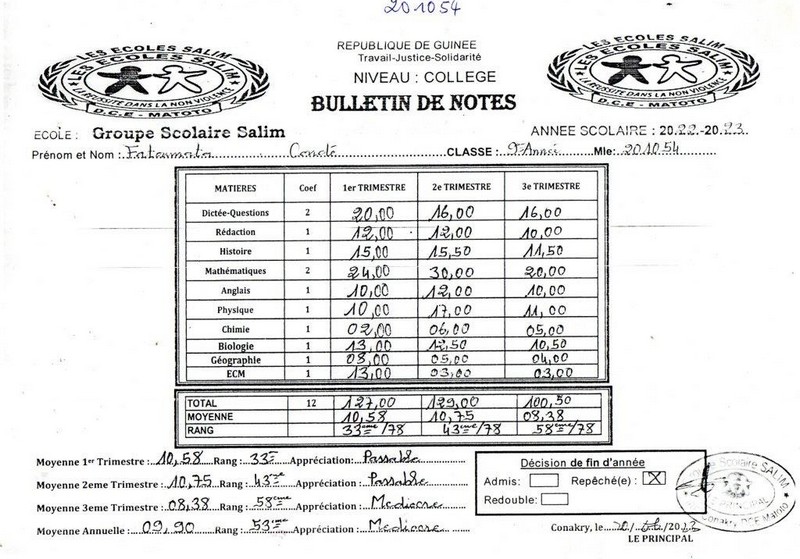 201054
LES ECOLES SALIM
LES ECOLES SALIM
LA REUSSITE DANS LA NON VIOLENCE
D.C.E - MATOTO
REPUBLIQUE DE GUINEE
Travail-Justice-Solidarité
NIVEAU : COLLEGE
BULLETIN DE NOTES
LES ECOLES SALIM
LES ECOLES SALIM
LA REUSSITE DANS LA NON VIOLENCE
D.C.E - MATOTO
ECOLE : Groupe Scolaire Salim ANNEE SCOLAIRE : 20.22-20.23
Prénom et Nom : Fatoumata Condé CLASSE : 9e Année Mle: 201054
MATIERES Coef 1er TRIMESTRE 2e TRIMESTRE 3e TRIMESTRE
Dictée-Questions 2 20,00 16,00 16,00
Rédaction 1 12,00 12,00 10,00
Histoire 1 15,00 15,50 11,50
Mathématiques 2 24,00 30,00 20,00
Anglais 1 10,00 12,00 10,00
Physique 1 10,00 17,00 11,00
Chimie 1 02,00 06,00 05,00
Biologie 1 13,00 12,50 10,50
Géographie 1 08,00 05,00 04,00
ECM 1 13,00 03,00 03,00
TOTAL 12 127,00 129,00 100,50
MOYENNE 10,58 10,75 08,38
RANG 33eme/78 43eme/78 58eme/78
Moyenne 1er Trimestre : 10,58 Rang : 33e Appréciation: Passable
Moyenne 2eme Trimestre : 10,75 Rang : 43e Appréciation : Passable
Moyenne 3eme Trimestre : 08,38 Rang : 58eme Appréciation : Mediocre
Moyenne Annuelle : 09,90 Rang : 53eme Appréciation : Mediocre
Décision de fin d'année
Admis: Repêché(e) : X
Redouble:
Scolaire SALIM
PRINCIPAL
Conakry DCE Matoto
Conakry, le 20/06/2023
LE PRINCIPAL